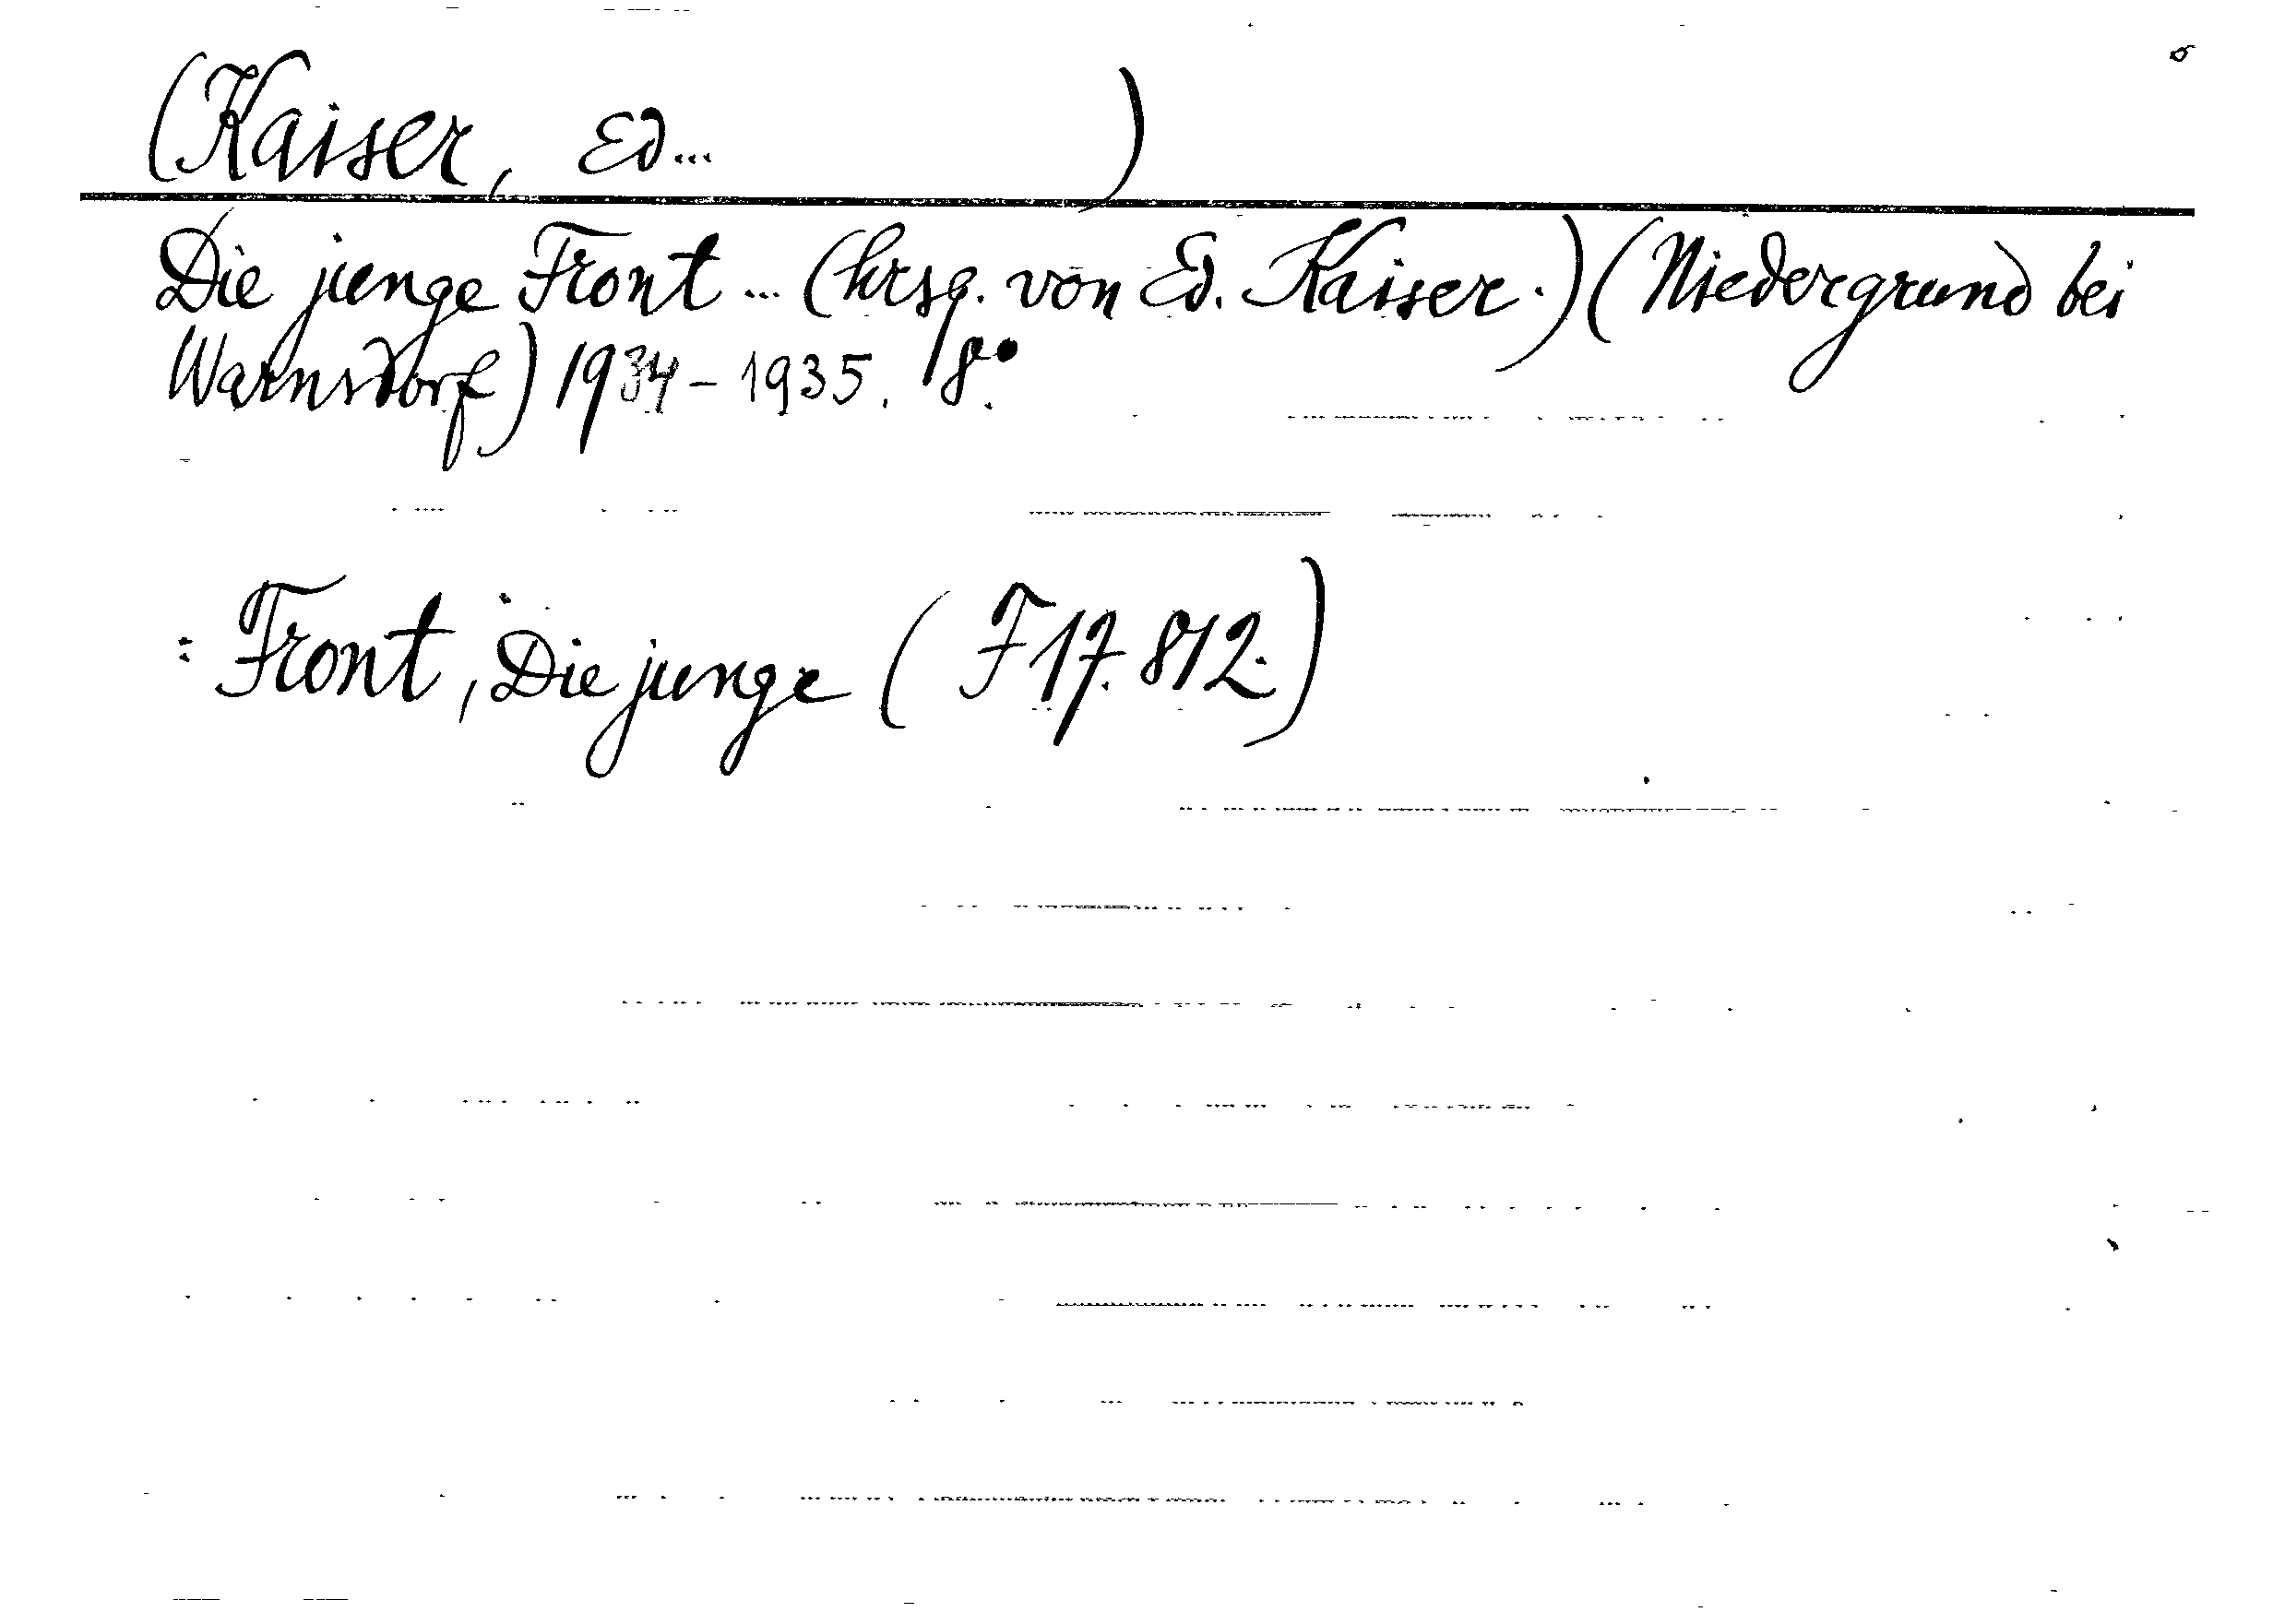 (Kaiser, Ed... )
Die junge Front ... (hrsg. von Ed. Kaiser.) (Niedergrund bei
Warnsdorf) 1934-1935. 8°.
: Front, Die junge (F 17.812.)